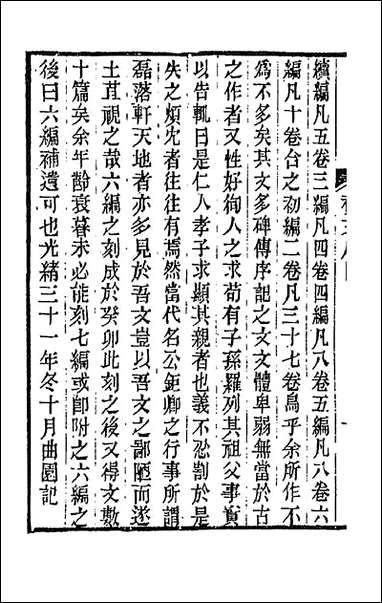 續編凡五卷三編凡四卷四編凡八卷五編凡八卷六
編凡十卷合之初編二卷凡三十七卷烏乎余所作不
爲不多矣其文多碑傳序記之文文體卑弱無當於古
之作者又性好徇人之求苟有子孫羅列其祖父事實
以告輒曰是仁人孝子求顯其親者也義不忍割於是
失之煩宂者往往有焉然當代名公鉅卿之行事所謂
磊落軒天地者亦多見於吾文豈以吾文之鄙陋而遂
土苴視之哉六編之刻成於癸卯此刻之後又得文數
十篇矣余年齡衰暮未必能刻七編或卽附之六編之
後曰六編補遺可也光緒三十一年冬十月曲園記